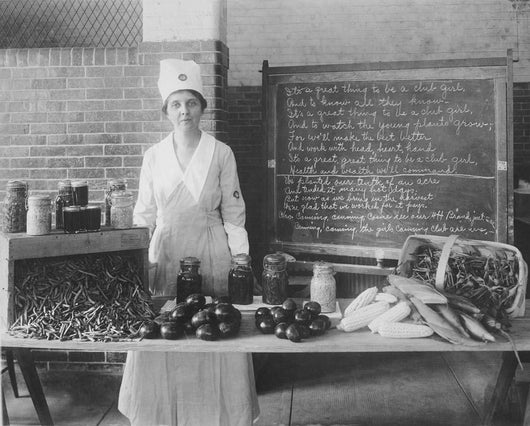 It's a great thing to be a club girl,
And to know all they know.
It's a great thing to be a club girl,
And to watch the young plants grow;
For we'll make the best better
And work with head, heart, hand
It's a great, great thing to be a club girl,
Health and wealth we'll command.
We planted over tenth of an acre
And tended it many hot days,
Now as we bring in the harvest
We're glad our it pays.
Canning, canning Come see our 4H Brand,
Canning, canning, the girls Canning Club are we,